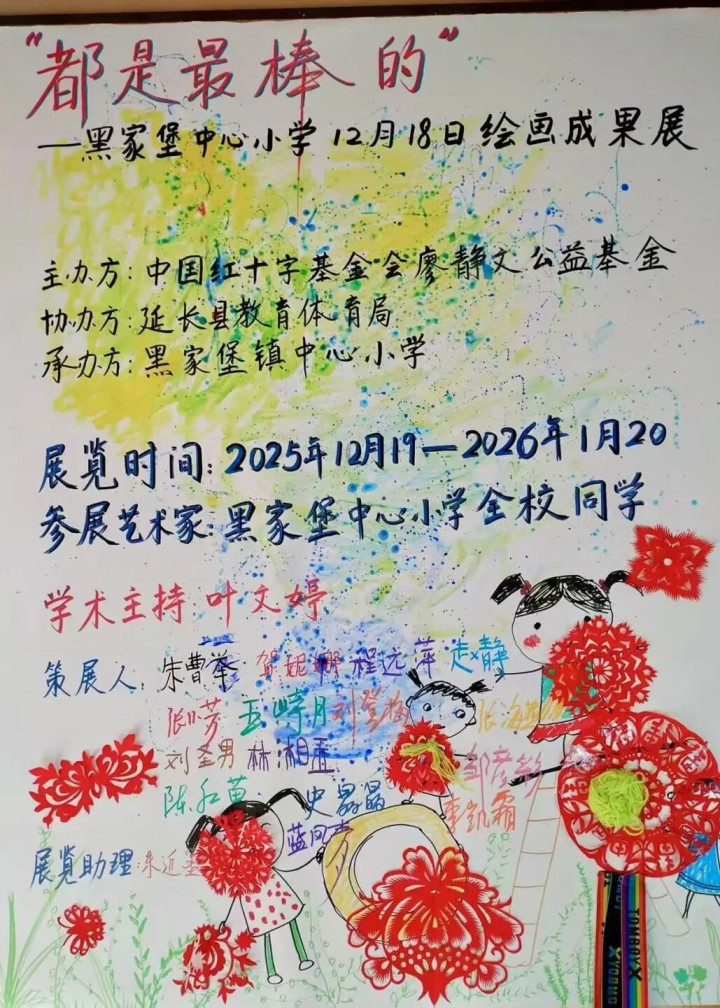 “都是最棒的”
—黑家堡中心小学12月18日绘画成果展
主办方:中国红十字基金会廖静文公益基金
协办方:延长县教育体育局
承办方:黑家堡镇中心小学
展览时间:2025年12月19—2026年1月20
参展艺术家:黑家堡中心小学全校同学
学术主持 叶文婷
策展人:朱曹举 贺妮娜 程远萍
张小芳 刘登梅 张海燕
刘圣男 林湘孟 邹彦
陈红苗 史晶晶 李凯霜
展览助理:朱近